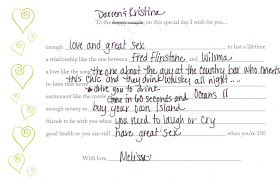 Darren & Kristina
To the happy couple, on this special day I wish for you...
enough love and great sex to last a lifetime
a relationship like the one between Fred Flinstone and Wilma
a love like the song the one about the guy at the country bar who meets
this chick and they drink whiskey all night...
drive you to drink
excitement like the movie Gone in 60 seconds and Oceans 11
enough money to buy your own Island
friends to be with you when you need to laugh or cry
good health so you can still have great sex when you're 100
With love, Melissa